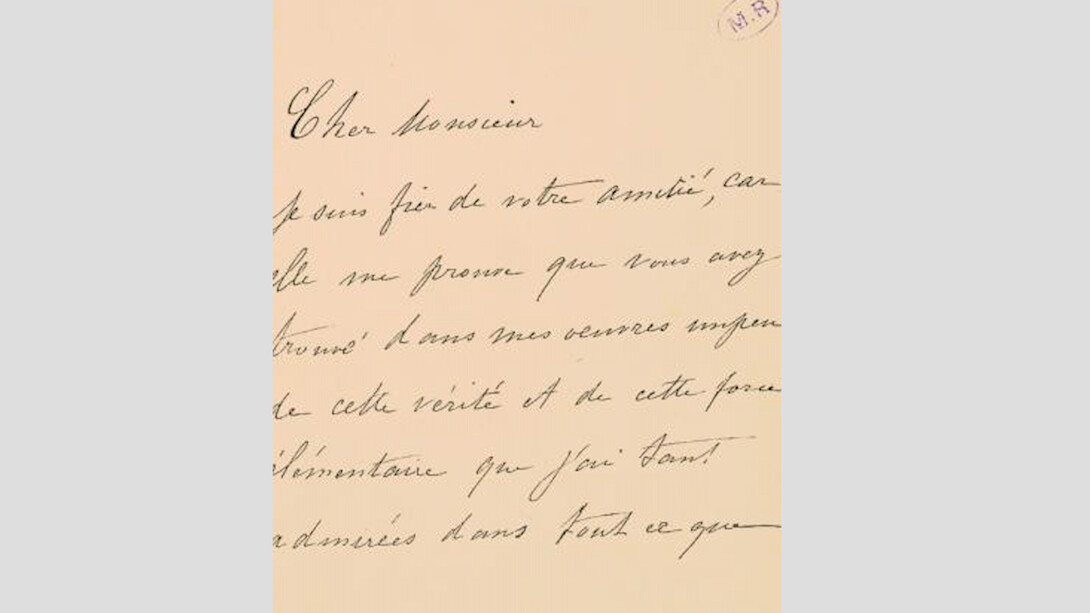 M.R
Cher Monsieur
Je suis fier de votre amitié, car
elle me prouve que vous avez
trouvé dans mes oeuvres un peu
de cette vérité et de cette force
élémentaire que j'ai tant
admirées dans tout ce que